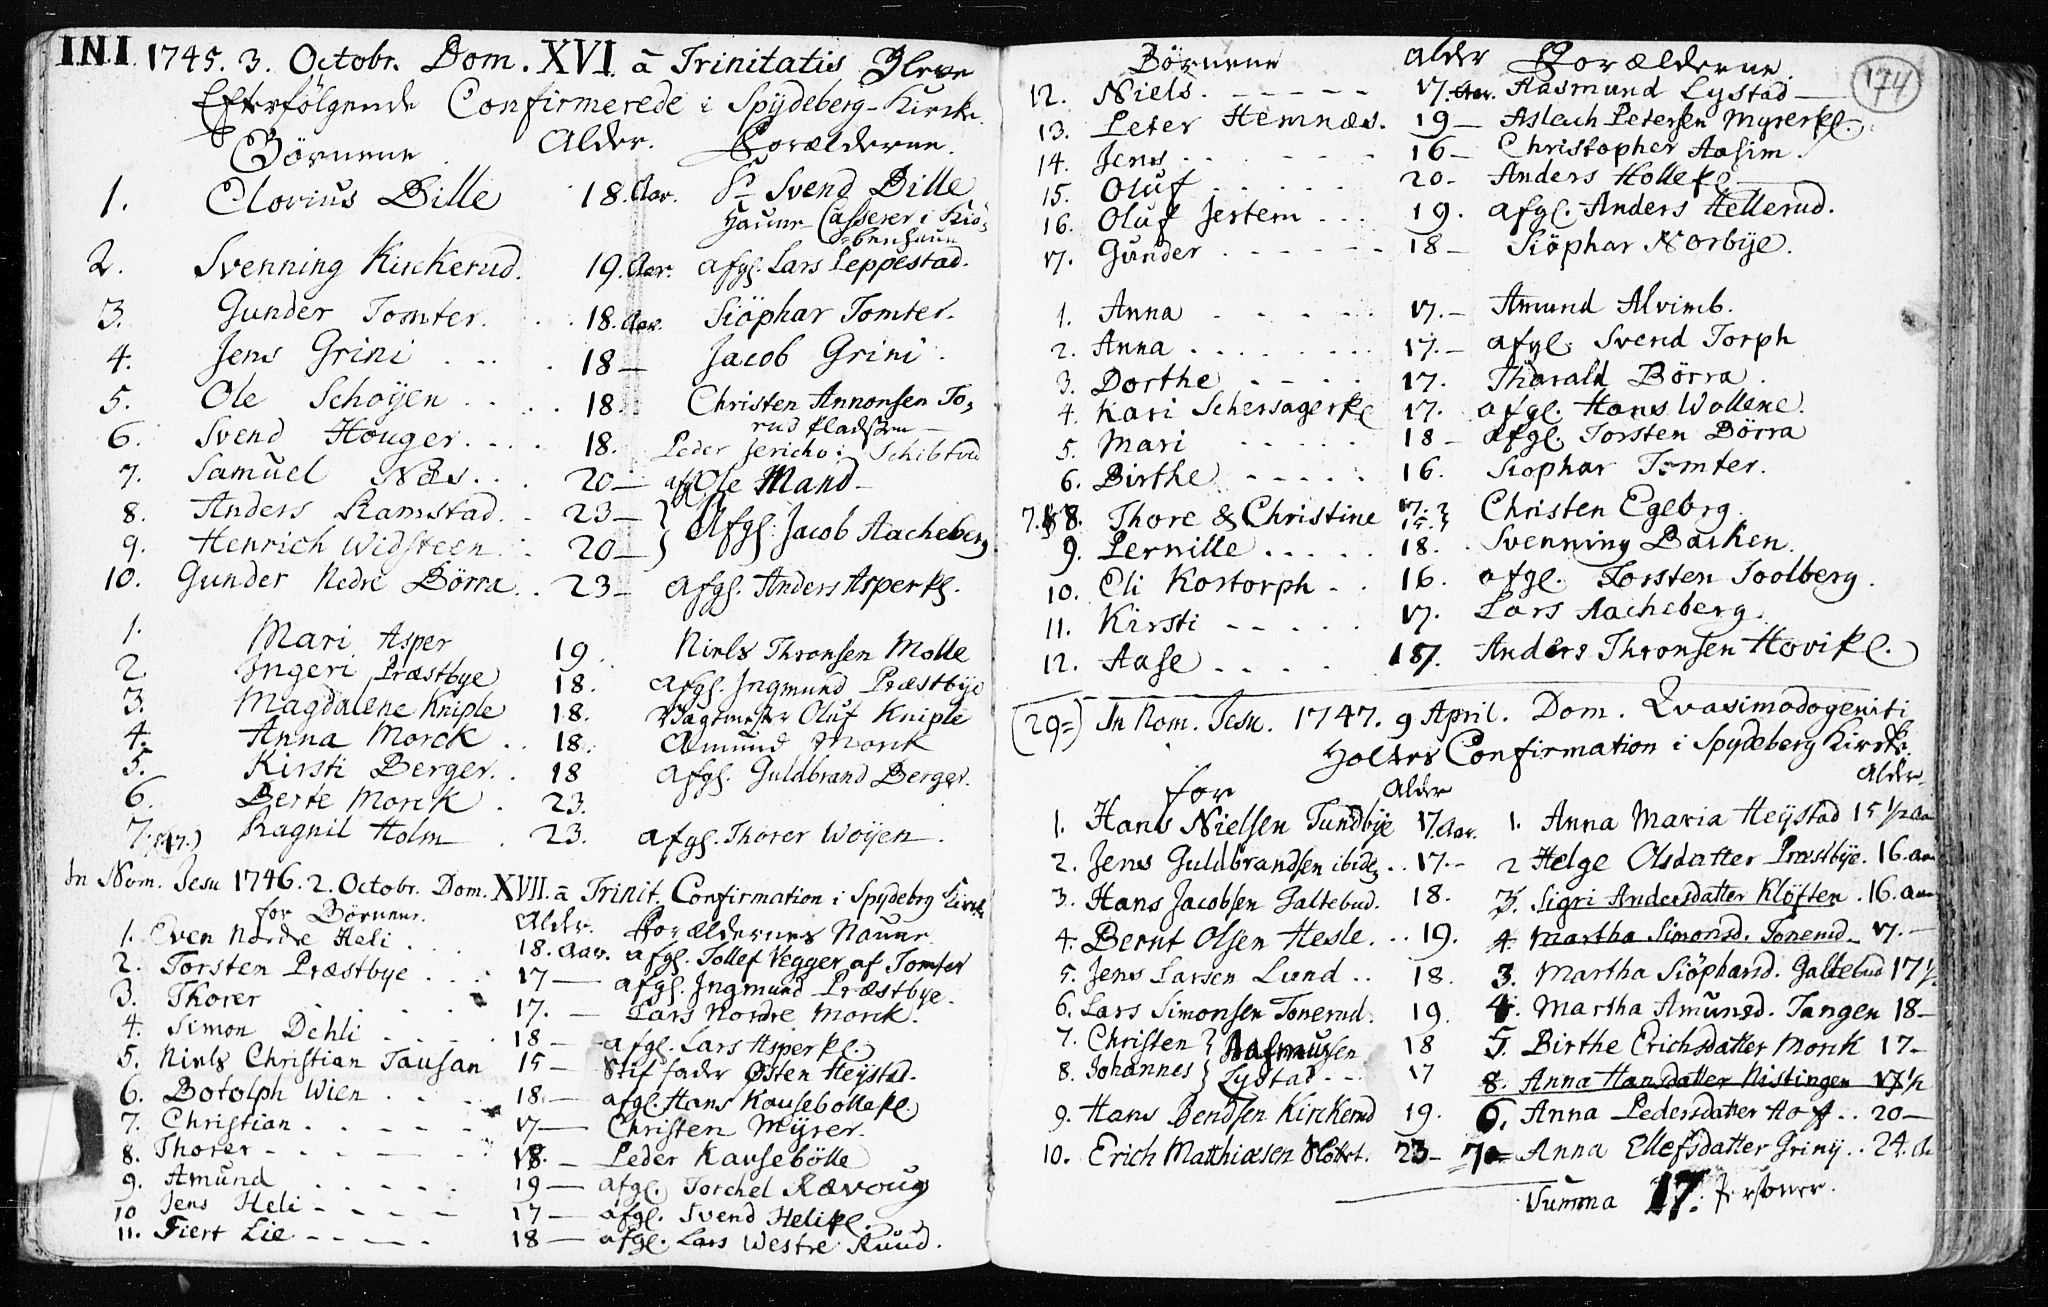 I.N.I. 1745. 3. Octobr. Dom. XVI. à Trinitatis Bleve
Efterfölgende Confirmerede i Spÿdeberg-Kirche.
Börnene Alder. Forælderne.
1. Clorius Bille 18. Aar. Sr Svend Bille
Haune Casserer i Kiö-
benhaun
2. Svenning Kirckerud. 19. Aar. afgl. Lars Leppestad.
3. Gunder Tomter. 18. Aar. Siöphar Tomter.
4. Jens Grini 18 — Jacob Grini.
5. Ole Schoÿen 18. Christen Annonsen To-
rud Pladsen
6. Svend Houger 18. Peder Jericho: Schibtvd
7. Samuel Næs 20 — afgl Ole Mand
8. Anders Ramstad. 23 — } Afgl: Jacob Aacheberg
9. Henrich Widsteen 20 — }
10. Gunder Nedre Börra 23 — afgl. Anders Asperpl.
1. Mari Asper 19 Niels Thronsen Molle
2. Ingeri Præstbye 18. afgl. Ingmund Præstbÿe
3. Magdalene Kniple 18. Vagtmester Oluf Kniple
4. Anna Morck 18. Amund Morck
5. Kirsti Berger. 18 afgl. Guldbrand Berger.
6. Berte Morck 23.
7. (17.) Ragnil Holm 23. afgl. Thorer Woÿen.
In Nom. Jesu 1746. 2. Octobr. Dom. XVII. à Trinit. Confirmation i Spÿdebrg Kirche
for Börnene. Alder. Forældernes Naune.
1. Even Nordre Heli 18. Aar. afgl. Tollef Vegger af Tomter
2. Torsten Præstbye 17 — afgl. Ingmund Præstbye.
3. Thorer 17. — Lars Nordre Morck.
4. Simon Dehli 18 — afgl. Lars Asperpl.
5. Niels Christian Tausan 15 — Stiffader Østen Heÿstad.
6. Botolph Wien 18. — afgl. Hans Kouseböllepl.
7. Christian 17 — Christen Mÿrer.
8. Thorer 18. — Peder Kausebölle
9. Amund 19 — afgl. Torchel Rævoug
10 Jens Heli 17 — afgl. Svend Helipl.
11. Fiert Lie 18 — afgl. Lars Westre Ruud.
174
Börnene Alder Forælderne
12. Niels. 17. Aar. Aasmund Lystad
13. Peter Hemnæs. 19 — Aslach Petersen Myrerpl.
14. Jens 16 — Christopher Aasim.
15. Oluf 20 - Anders Hollepl
16. Oluf Jertem 19. afgl. Anders Hellerud.
17. Gunder 18 — Siöphar Norbÿe.
1. Anna 17. — Amund Alvimb.
2. Anna 17. — afgl. Svend Torph
3. Dorthe 17. Tharald Börra
4. Kari Schersagerpl 17. afgl. Hans Wollene.
5. Mari 18 — afgl. Torsten Börra
6. Birthe 16. Siophar Tomter.
7. & 8. Thore & Christine 17. } 15. } Christen Egebrg.
9. Pernille 18. Svenning Backen.
10. Eli Kostorph 16. afgl. Torsten Toolberg.
11. Kirsti 17. Lars Aacheberg
12. Aase 187. Anders Thronsen Hovikpl.
(29=) In Nom. Jesu. 1747. 9 April. Dom. Qvasimodogeniti
Holtes Confirmation i Spydeberg Kircke.
for Alder Alder
1. Hans Nielsen Tundbÿe 17. Aar. 1. Anna Maria Heÿstad 15 1/2 Aar
2. Jens Guldbrandsen ibid. 17. — 2 Helge Olsdatter Præstbÿe. 16. aar
3. Hans Jacobsen Galtebud. 18. 3. Sigri Andersdatter Klöften. 16. aar
4. Bernt Olsen Hesle. 19. 4. Martha Simonsd. Tonerud 17. —
5. Jens Larsen Lund 18. 3. Martha Siöphard. Galtebud 17 1/2
6. Lars Simonsen Tonerud. 19. 4. Martha Amunsd. Tangen 18 —
7. Christen } Aasmussen 18 5. Birthe Erichsdatter Morck 17 —
8. Johannes } Lystad 17 8. Anna Hansdatter Nistingen 17 1/2
9. Hans Bendsen Kirckerud 19. 6. Anna Pedersdatter Hof 20 —
10. Erich Matthiæsen 23 — 7 Anna Ellefsdatter Griny 24.
Summa 17. Personer.